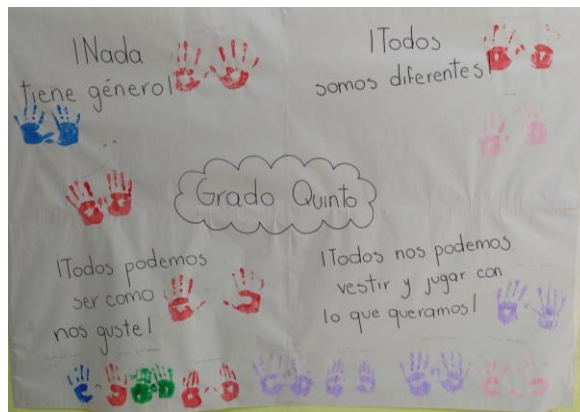 ¡Nada
tiene género!
¡Todos
somos diferentes!
Grado Quinto
¡Todos podemos
ser como
nos guste!
¡Todos nos podemos
vestir y jugar con
lo que queramos!